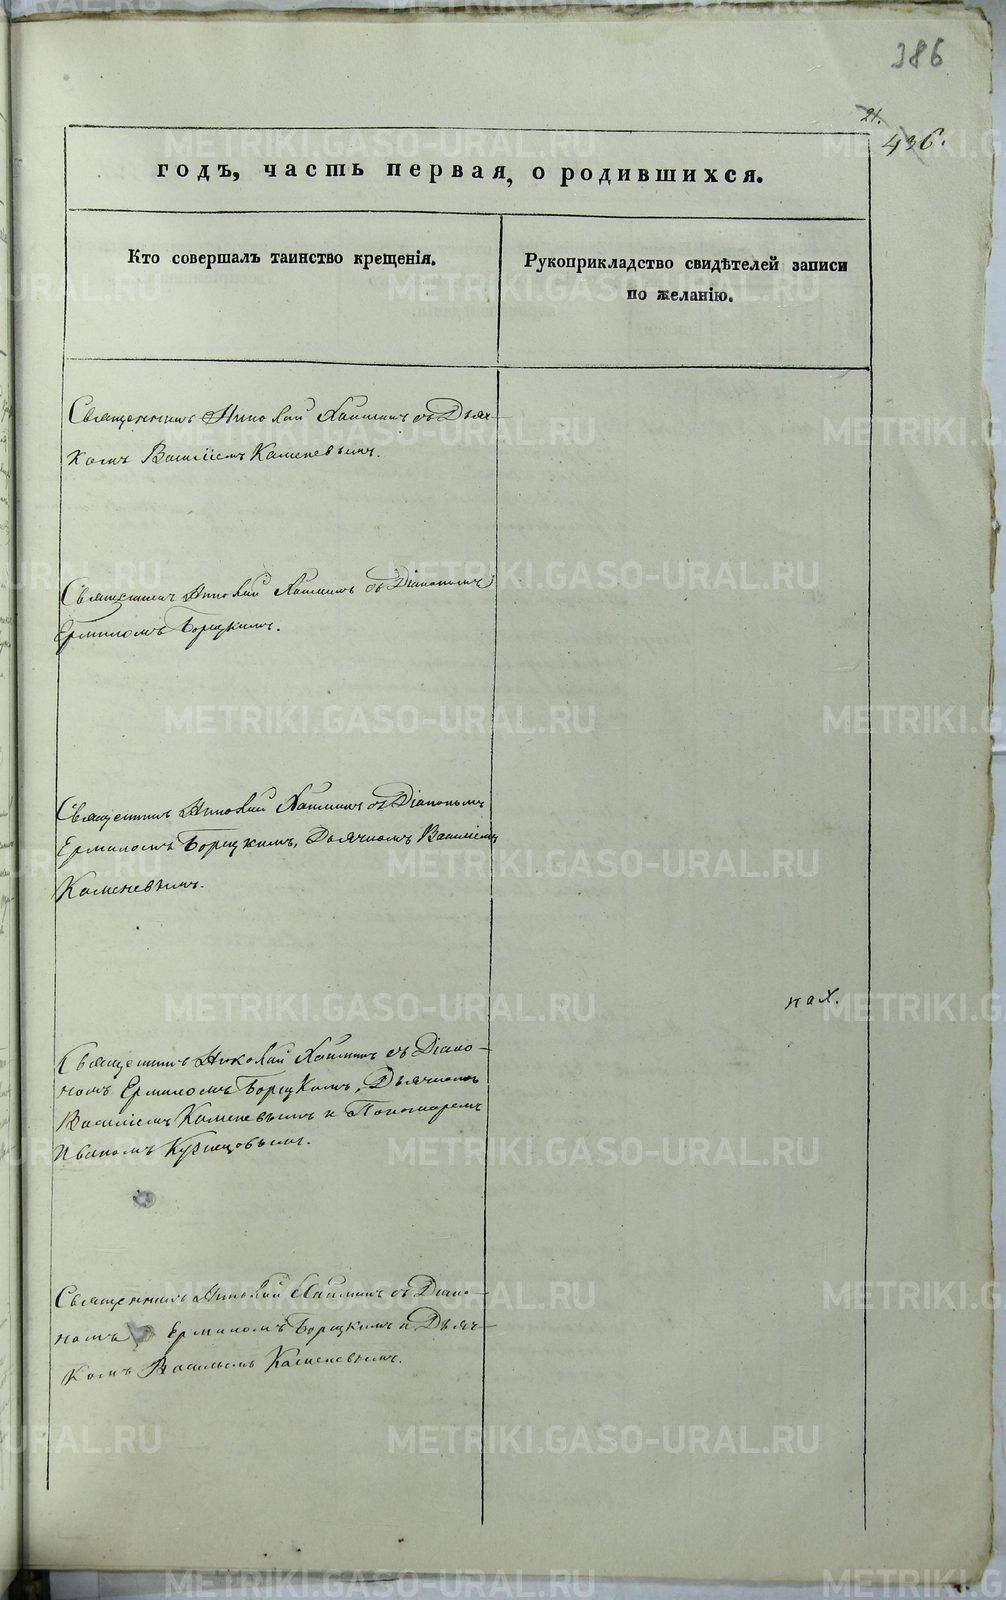 386
21.
436.
годъ, часть первая, о родившихся.
Кто совершалъ таинство крещенія.
Рукоприкладство свидѣтелей записи
по желанію.
Священникъ Николай съ Дьяч-
комъ Василіемъ Каменевымъ.
Священникъ Николай съ Діакономъ
Ермиломъ Борецкимъ.
Священникъ Николай съ Діакономъ
Ермиломъ Борецкимъ, Дьячкомъ Василіемъ
Каменевымъ.
нах.
Священникъ Николай съ Діако-
номъ Ермиломъ Борецкимъ, Дьячкомъ
Василіемъ Каменевымъ и Пономаремъ
Иваномъ Кузнецовымъ.
Священникъ Николай съ Діако-
номъ Ермиломъ Борецкимъ и Дьяч-
комъ Васильемъ Каменевымъ.
METRIKI.GASO-URAL.RU